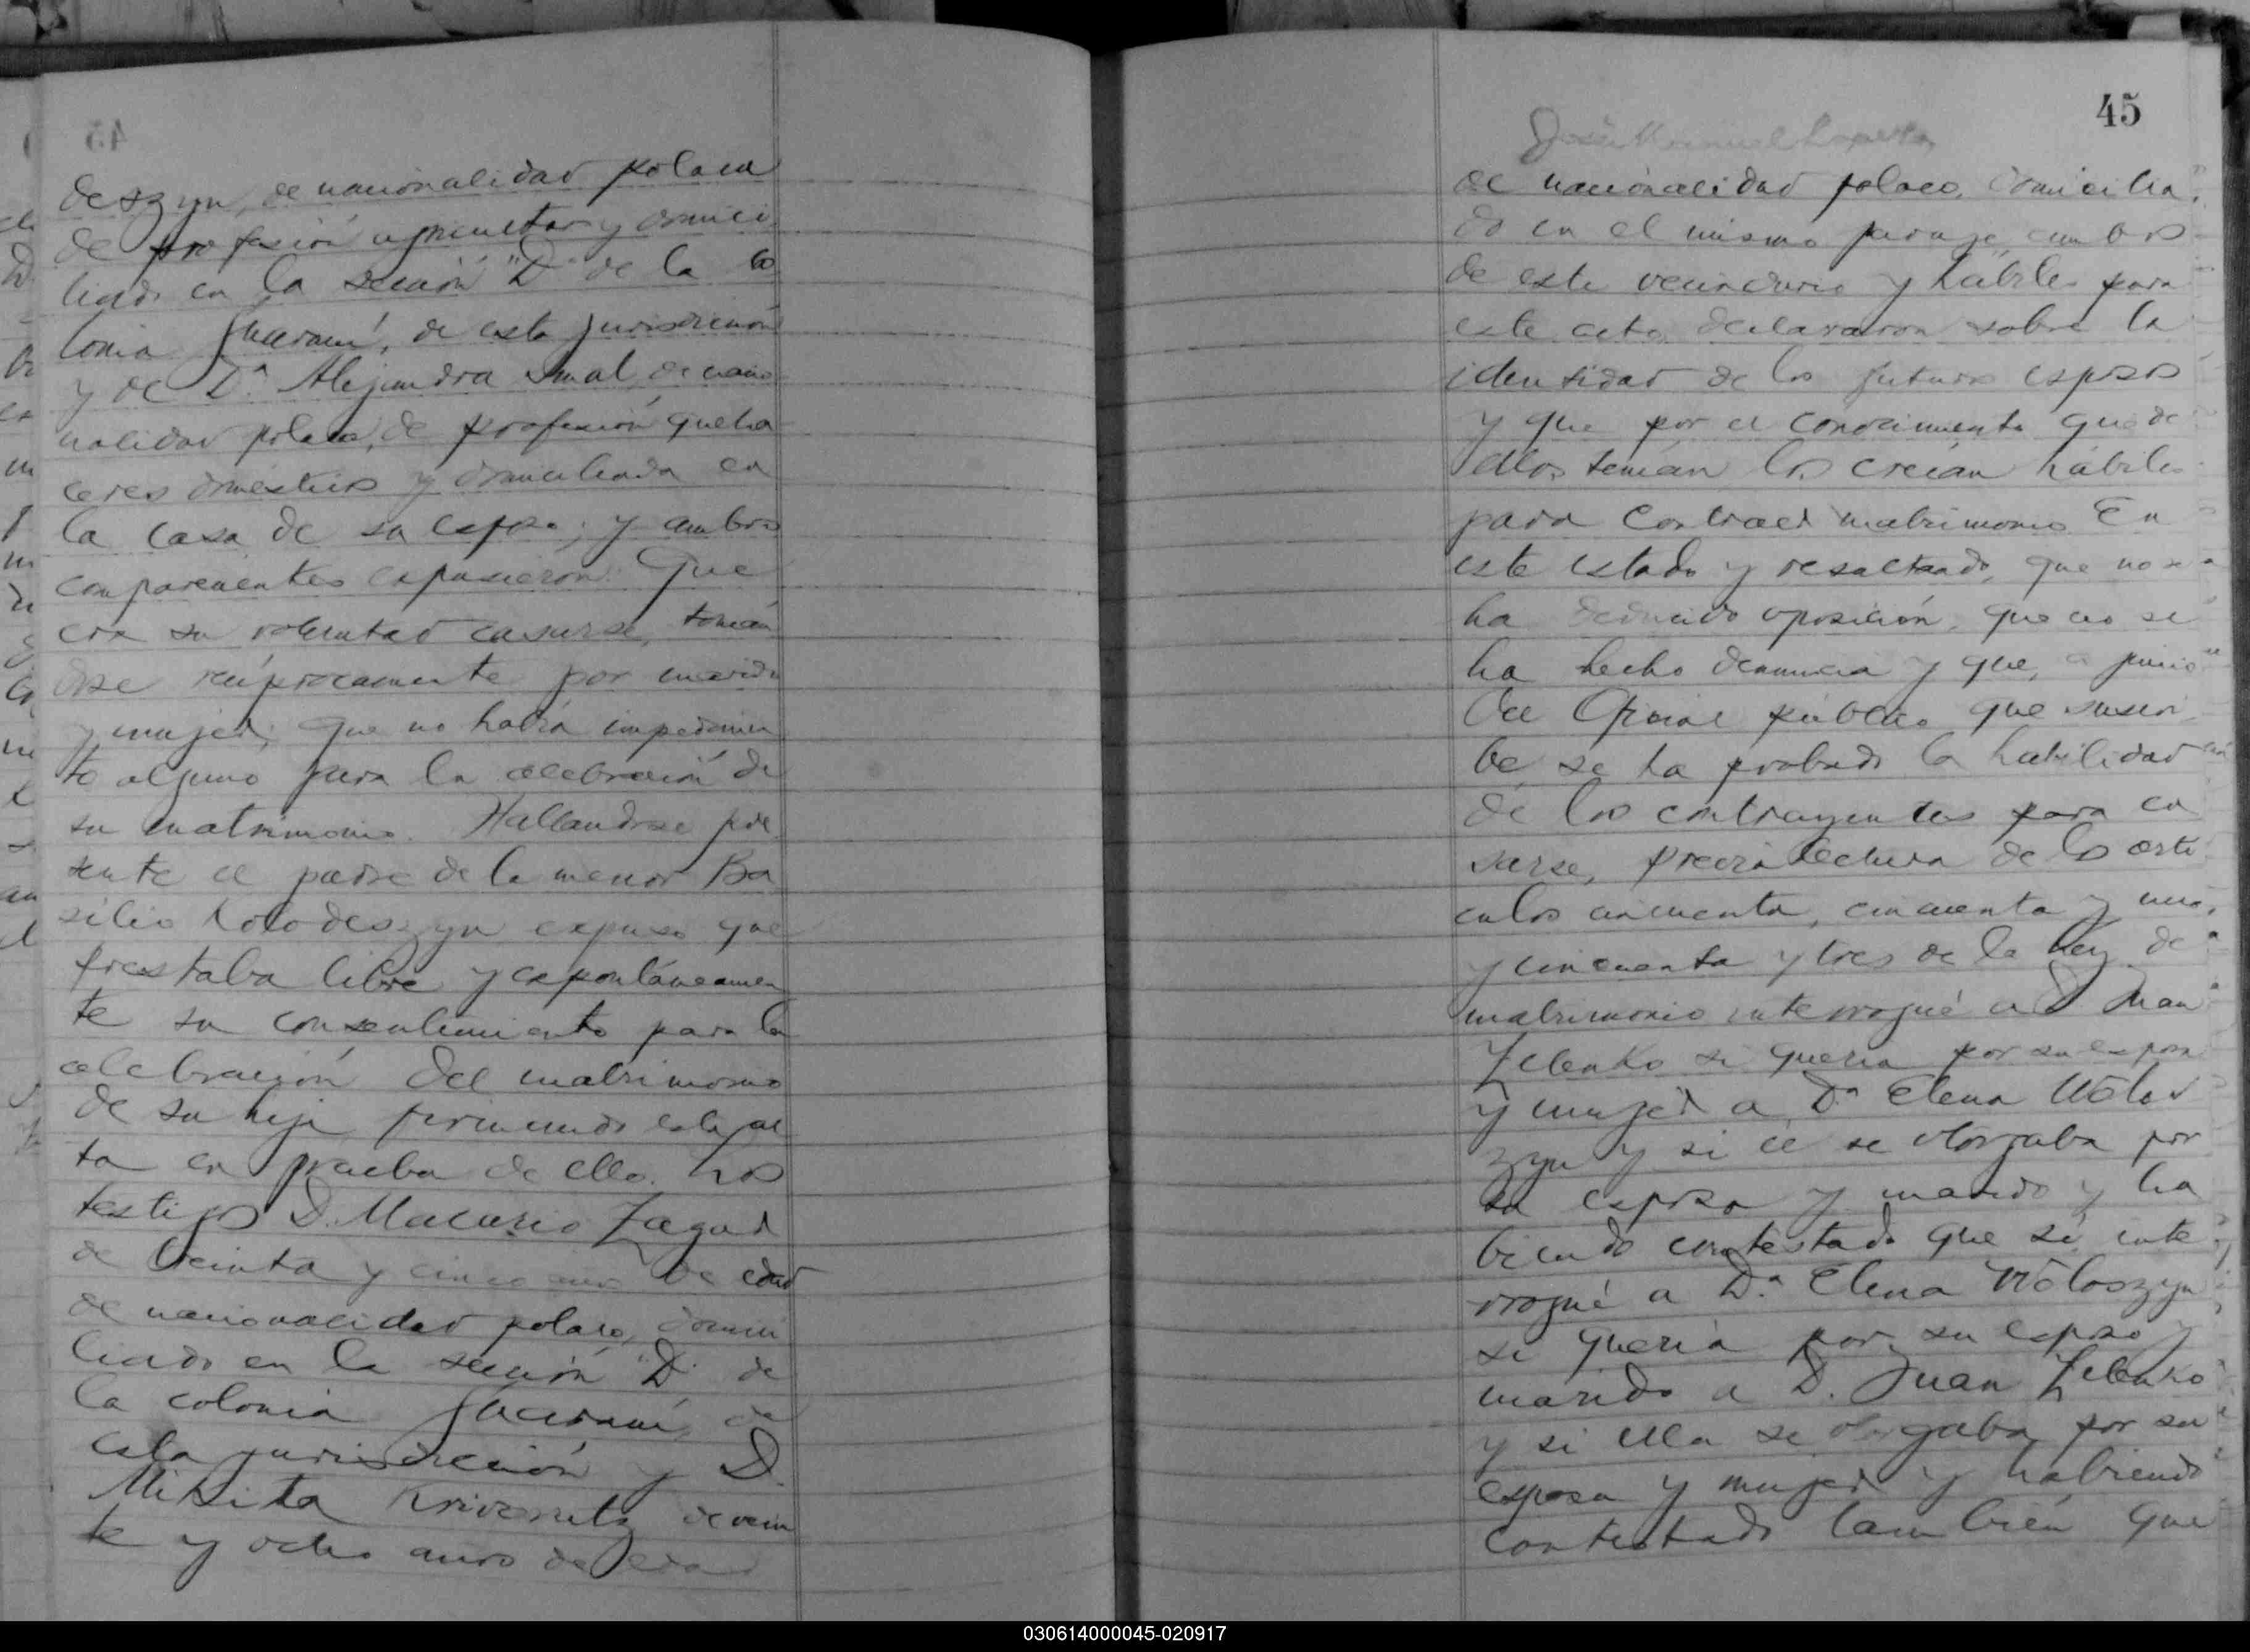 deszyn, de nacionalidad polaca
de profesión agricultor y domici
liado en la sección "D" de la co
lonia Guaraní, de esta jurisdicción
y de Dª Alejandra Smal, de nacio
nalidad polaca, de profesión queha
ceres domésticos y domiciliada en
la casa de su esposo; y ambos
comparecientes expusieron: Que
era su voluntad casarse, tomán
dose recíprocamente por marido
y mujer; que no había impedimen
to alguno para la celebración de
su matrimonio. Hallándose pre
sente el padre de la menor Ba
silio Holodeszyn expuso que
prestaba libre y espontáneamen
te su consentimiento para la
celebración del matrimonio
de su hija firmando esta ac
ta en prueba de ello. Los
testigos D. Macario Zagad
de treinta y cinco años de edad
de nacionalidad polaco, domici
liado en la sección "D" de
la colonia Guaraní, de
esta jurisdicción y D.
Mikita de vein
te y ocho años de edad
45
José Manuel
de nacionalidad polaco, domicilia
do en el mismo paraje, ambos
de este vecindario y hábiles para
este acto, declararon sobre la
identidad de los futuros esposos
y que por el conocimiento que de
ellos tenían los creían hábiles
para contraer matrimonio. En
este estado y resultando, que no se
ha deducido oposición, que no se
ha hecho denuncia y que, a juicio
del Oficial público que suscri
be se ha probado la habilidad
de los contrayentes para ca
sarse, previa lectura de los artí
culos cincuenta, cincuenta y uno,
y cincuenta y tres de la ley de
matrimonio interrogué a D Juan
Zelenko si quería por su esposa
y mujer a Dª Elena Wolos
zyn y si él se otorgaba por
su esposo y marido y ha
biendo contestado que sí, inte
rrogué a Dª Elena Woloszyn
si quería por su esposo y
marido a D. Juan Zelenko
y si ella se otorgaba por su
esposa y mujer y habiendo
contestado también que
030614000045-020917